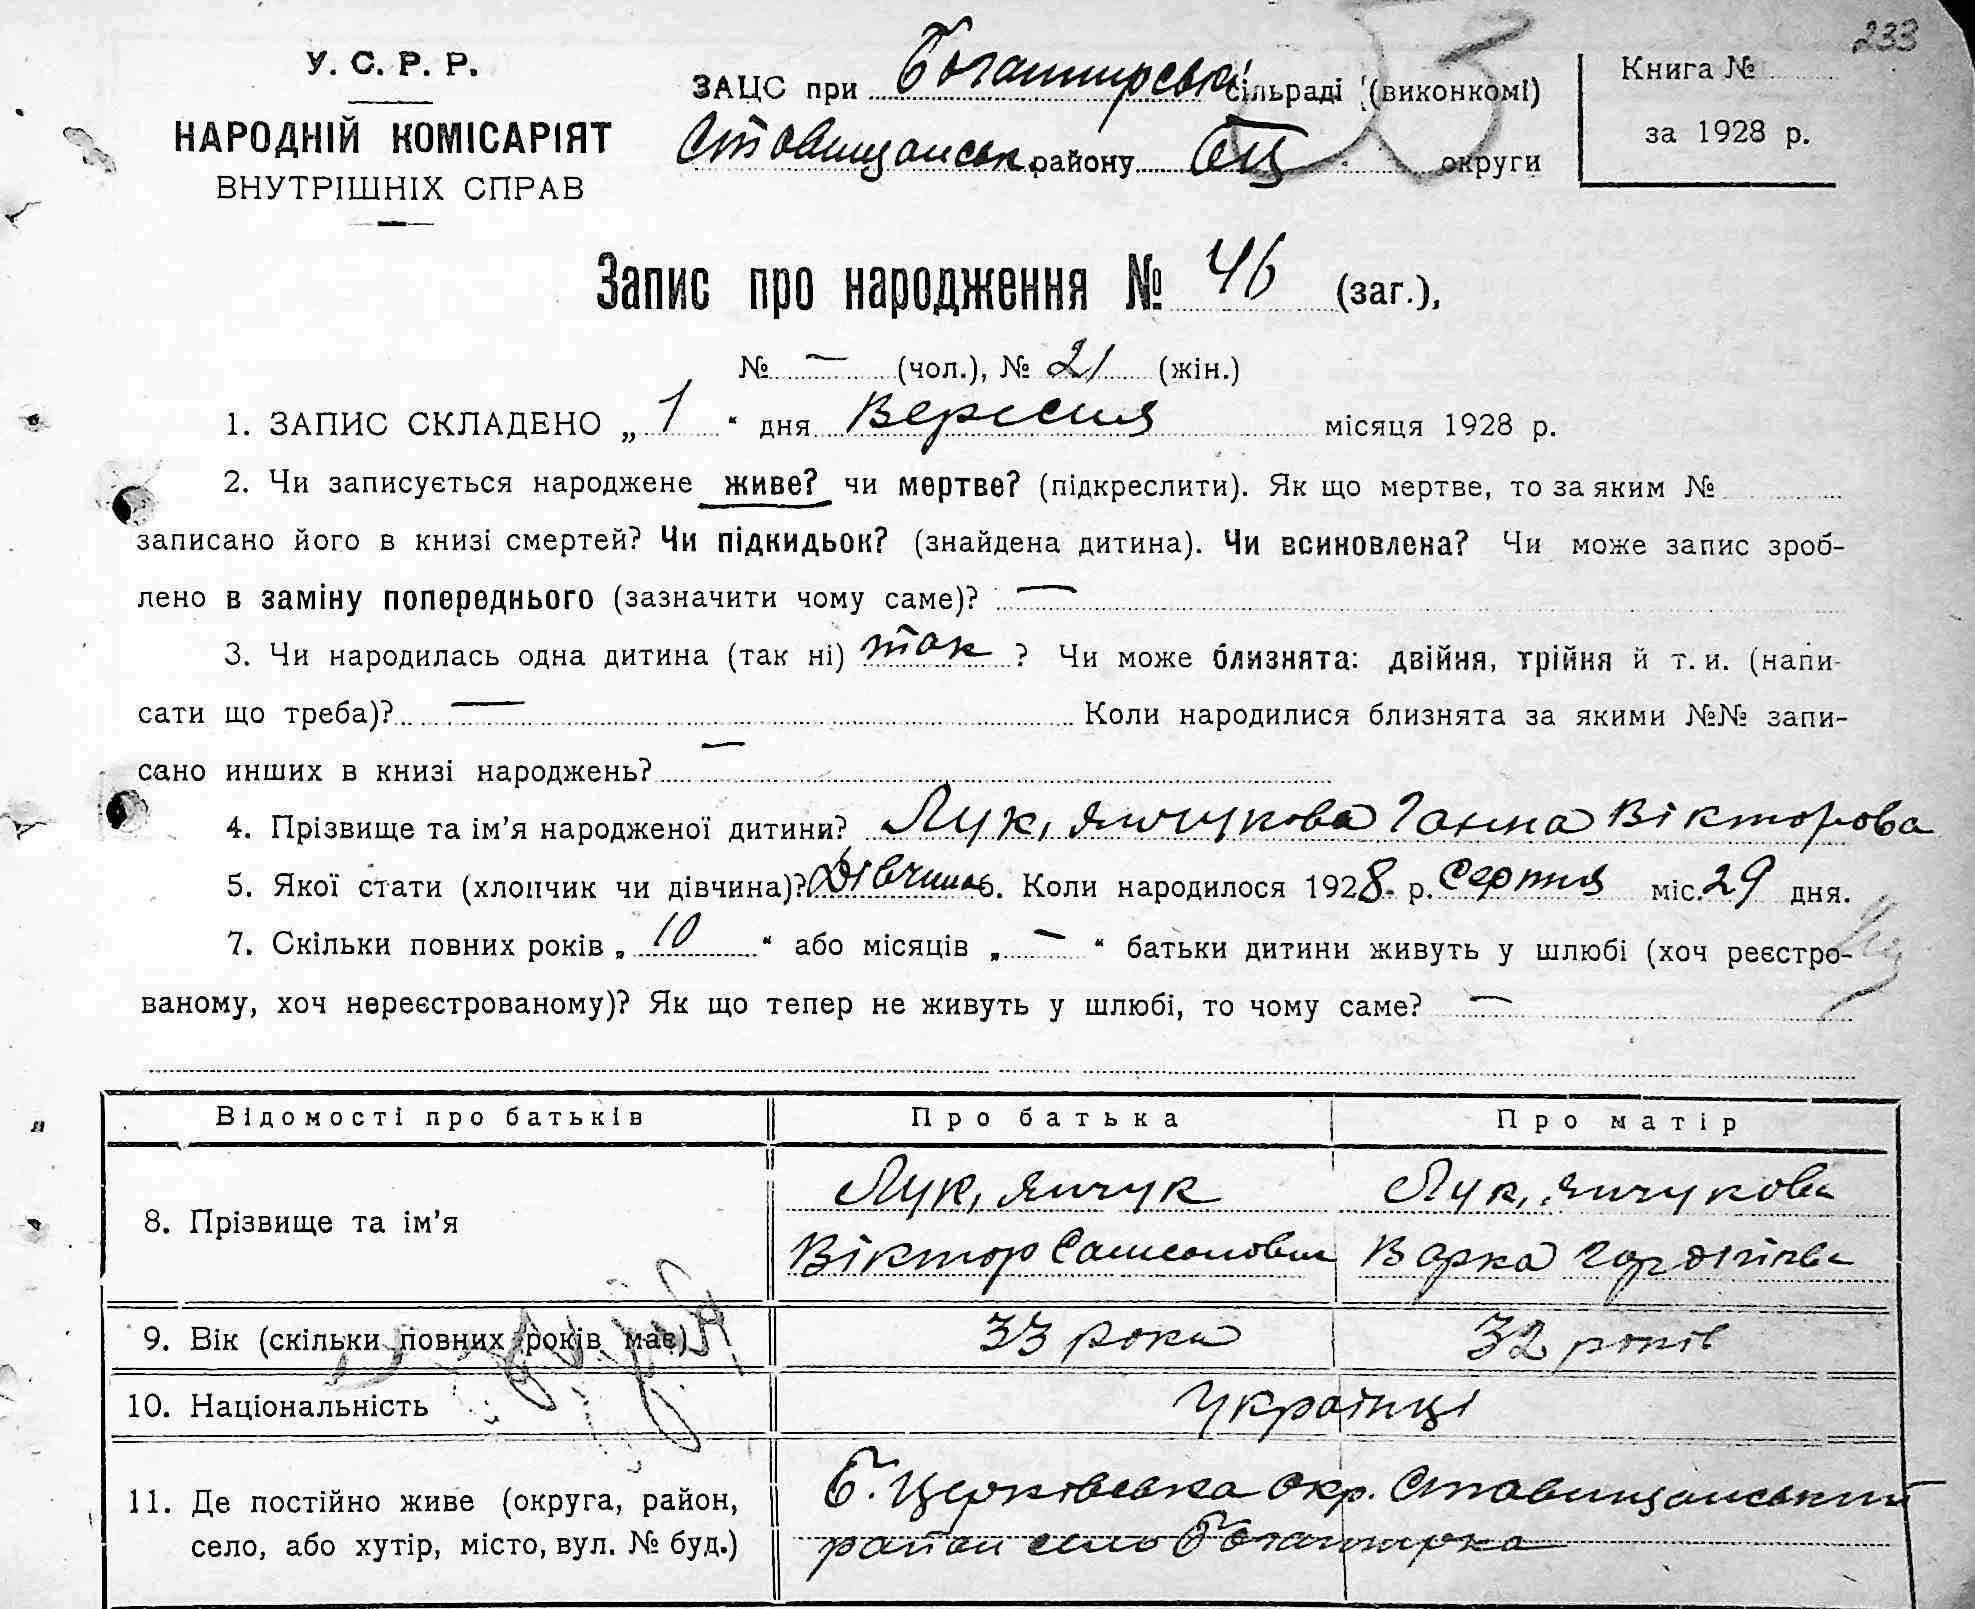 233
У. С. Р. Р.
НАРОДНІЙ КОМІСАРІЯТ
ВНУТРІШНІХ СПРАВ
ЗАЦС при Богатирській сільраді (виконкомі)
Ставищанськ. району БЦ округи
Книга №
за 1928 р.
Запис про народження № 46 (заг.),
№ — (чол.), № 21 (жін.)
1. ЗАПИС СКЛАДЕНО „ 1 “ дня Вересня місяця 1928 р.
2. Чи записується народжене живе? чи мертве? (підкреслити). Як що мертве, то за яким №
записано його в книзі смертей? Чи підкидьок? (знайдена дитина). Чи всиновлена? Чи може запис зроб-
лено в заміну попереднього (зазначити чому саме)? —
3. Чи народилась одна дитина (так ні) так ? Чи може близнята: двійня, трійня й т. и. (напи-
сати що треба)? — Коли народилися близнята за якими №№ запи-
сано инших в книзі народжень? —
4. Прізвище та ім’я народженої дитини? Лук,янчукова Ганна Вікторова
5. Якої стати (хлопчик чи дівчина)? Дівчина 6. Коли народилося 1928 р. Серпня міс. 29 дня.
7. Скільки повних років „ 10 “ або місяців „ — “ батьки дитини живуть у шлюбі (хоч реєстро-
ваному, хоч нереєстрованому)? Як що тепер не живуть у шлюбі, то чому саме? —
Відомості про батьків Про батька Про матір
8. Прізвище та ім’я Лук,янчук Лук,янчукова
Віктор Самсонович Варка Гордіїва
9. Вік (скільки повних років має) 33 роки 32 років
10. Національність Українці
11. Де постійно живе (округа, район, Б. Церківська окр. Ставищанський
село, або хутір, місто, вул. № буд.) район село Богатирка